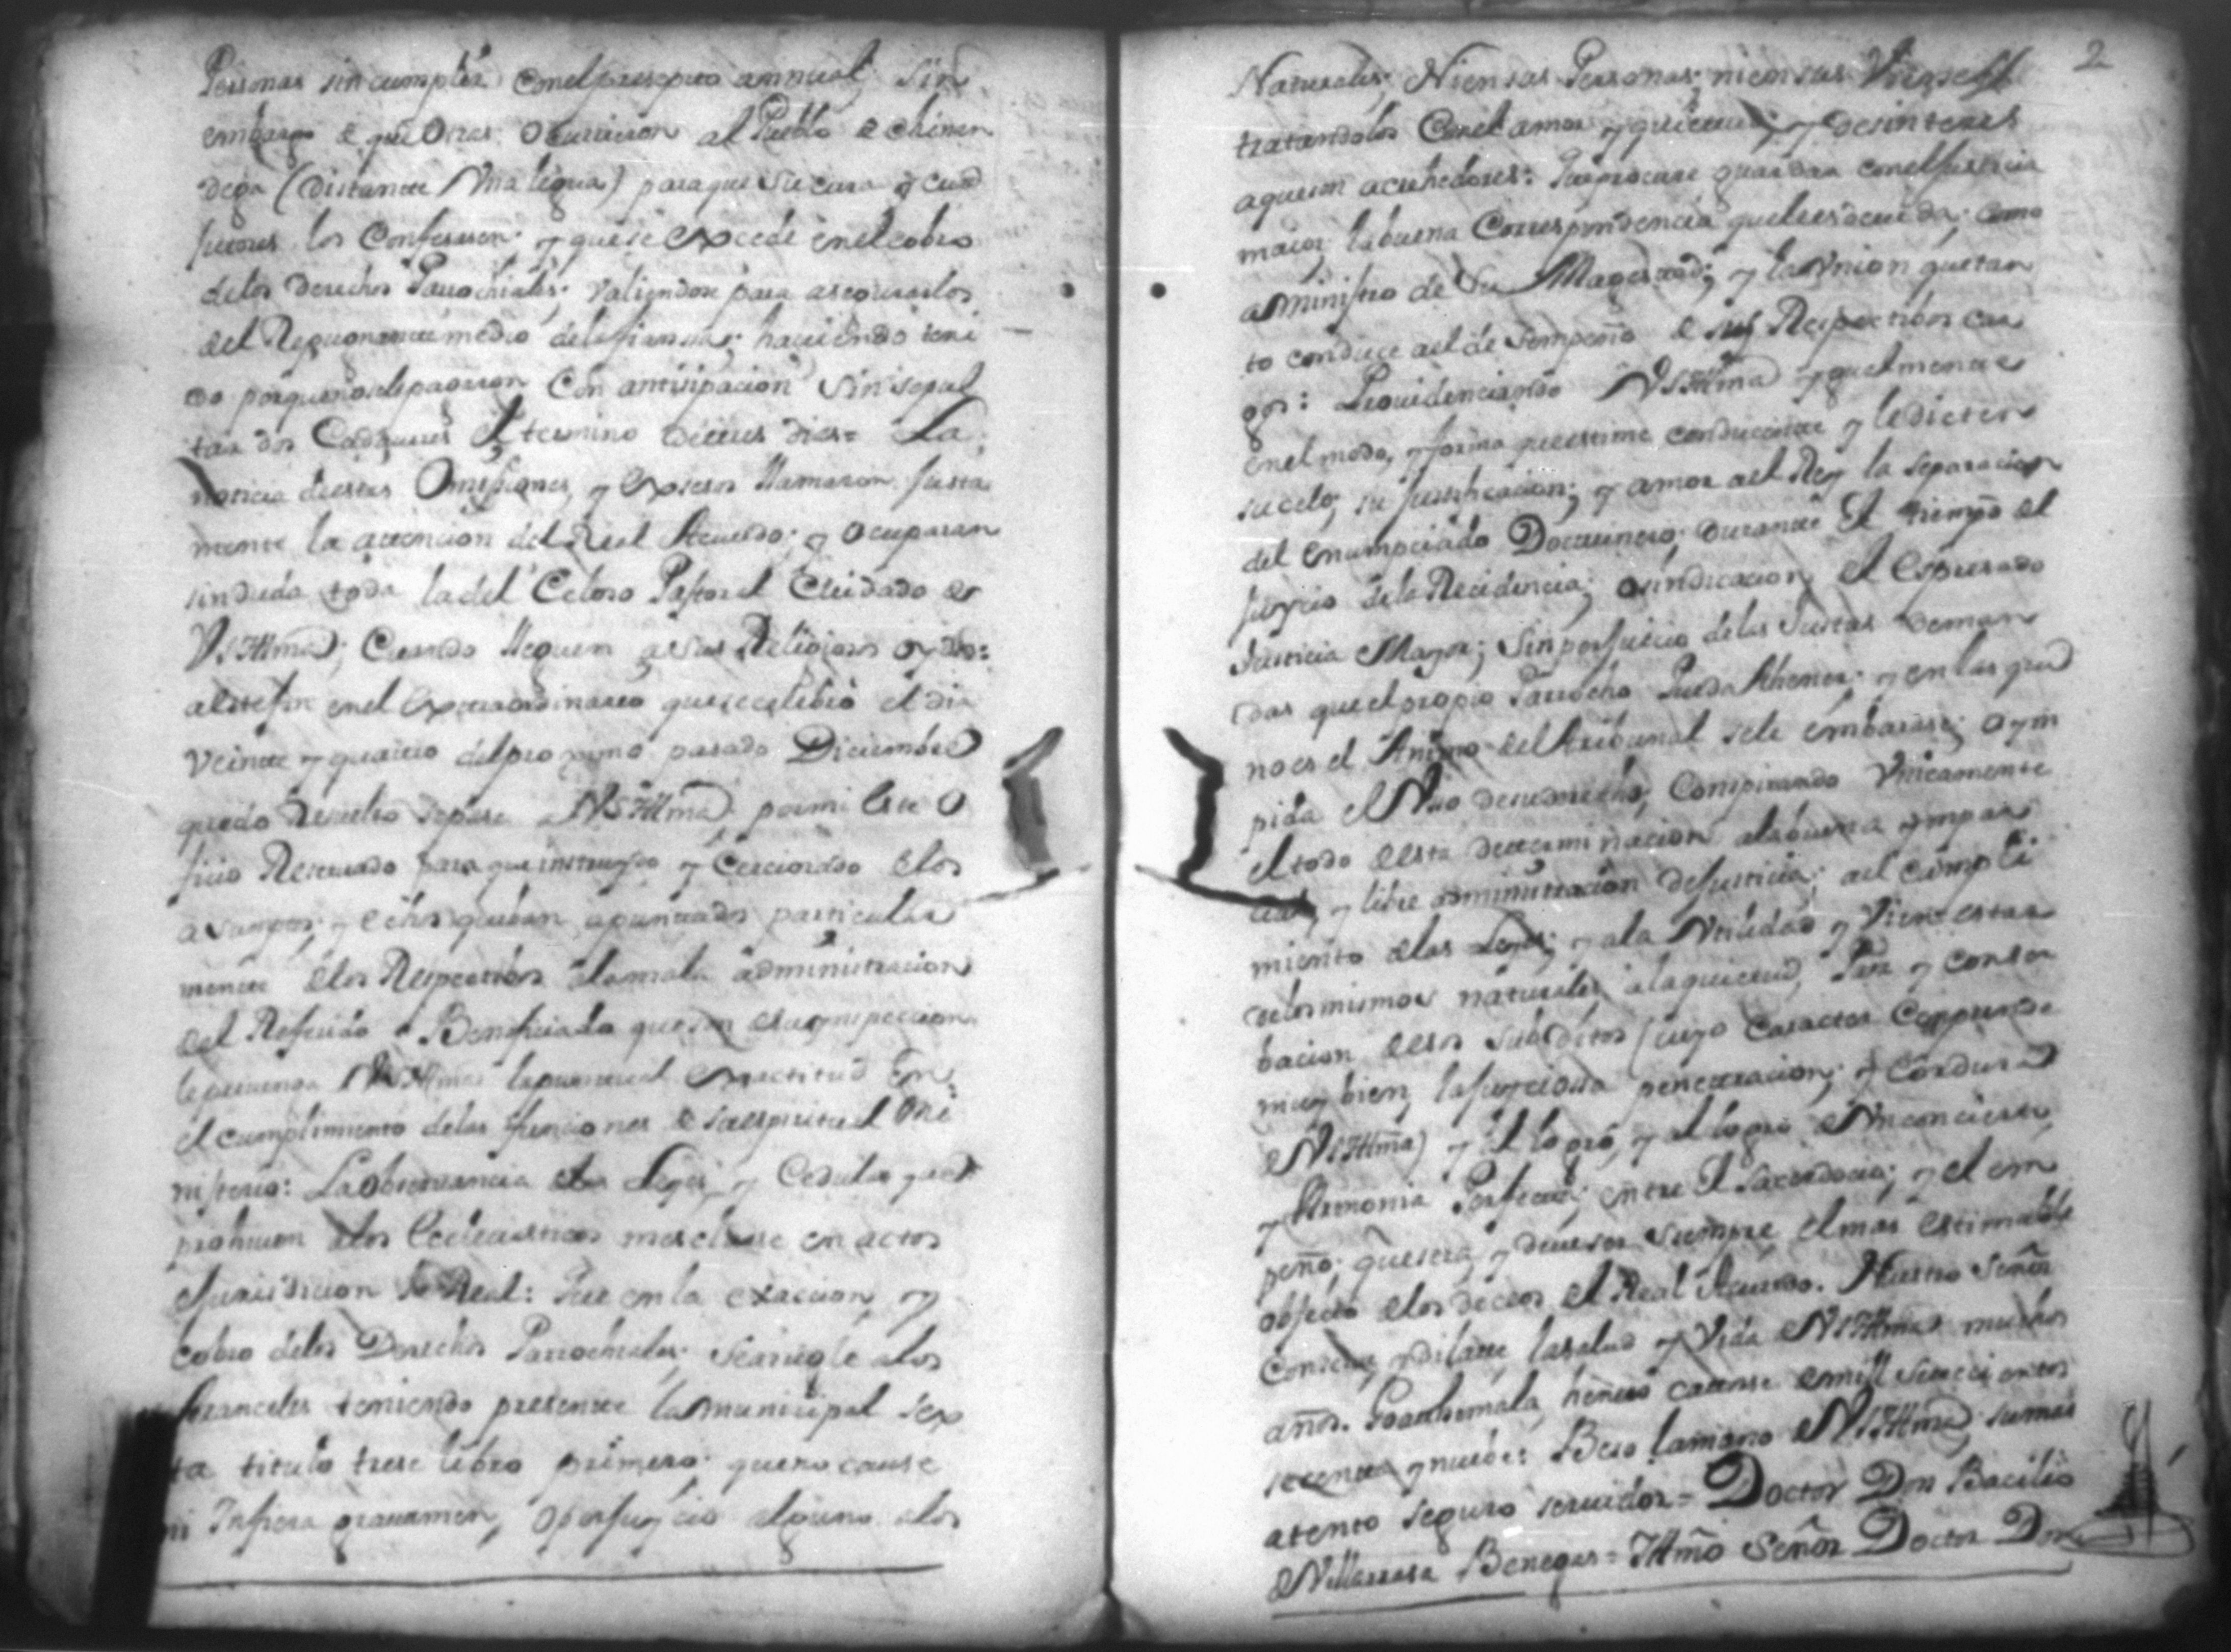 Personas sin cumplir con el presepto annual; sin
embargo de que Otras Ocurrieron al Pueblo de chinan
dega (distante Una legua) para que su cura y coad
jutores los Confesasen; y que se excede en el cobro
de los derechos Parrochiales; valiendose para asegurarlos
del Repugnante medio de la fiansa; haviendo teni
do porque no le pagaron Con antisipacion sin sepul
tar dos Cadaveres El termino de tres dias = La
noticia de estas Omisiones, y Exsesos llamaron justa
mente la atencion del Real Acuerdo; y Ocuparan
sin duda toda la del Celoso Pastoral Cuidado de
VSIllmã; Cuando lleguen a sus Religiosos oydos:
a este fin en el Extraordinario que se celebró el dia
Veinte y quatro del proximo pasado Diciembre
quedó Resuelto se pase a VSIllmã por mi este O
ficio Reservado para que instruydo y Cerciorado de los
asumptos; y echos que ban apuntados particular
mente de los Respectibos a la mala administracion
del Referido Beneficiado que son de su ynspeccion
le prevenga VSIllmã la puntual Exactitud En
el cumplimiento de las funciones de su espiritual Mi
nisterio: La Observancia de las Leyes, y Cedulas que
prohiven a los Ecclesiasticos mesclarse en actos
de Jurisdicion Real: Que en la exaccion, y
Cobro de los Derechos Parrochiales; se arregle a los
Aranceles teniendo presente la Municipal sex
ta titulo trese libro primero; que no cause
ni Infiera gravamen, o perjuycio alguno a los
2
Naturales; Ni en sus Personas; ni en sus
tratandolos Con el amor y quietud; y desinteres
a que son acrehedores: Que procure guardar con el Justicia
maior la buena Correspondencia que les es devida; como
a Ministro de Su Magestad; y la Union que tan
to conduce a el desempeño de sus Respectibos car
gos: Providenciando VSIllmã ygualmente
En el modo, y forma que estime conducente y le dicten
su celo; su justificacion; y amor a el Rey la separacion
del enumpciado Doctrinero; durante El tiempo del
juycio de la Recidencia; o sindicacion del Espresado
Justicia Mayor; Sin perjuicio de las Justas deman
das que el propio Parrocho Pueda thener; y en las que
no es el Animo del tribunal se le embarase; o ym
pida el Uso de su derecho; Conspirando Unicamente
el todo de esta determinacion a la buena ympar
cial, y libre administracion de Justicia; a el cumpli
miento de las Leyes; y a la Utilidad y Vien estar
de los mismos naturales; a la quietud, Paz y conser
bacion de esos subditos (cuyo Caracter Comprende
muy bien, la juyciosa penetracion; y Cordura
de VSIllmã) y el logro, y el logro de Un concierto,
y Armonia Perfecta; entre El Sacerdocio; y el em
peño; que sera, y deve ser siempre el mas estimable
objecto de los deceos del Real Acuerdo. Nuestro Señor
Conserve, y dilate la salud y Vida de VSIllmã muchos
años. Goathemala, henero catorse de mill setecientos
setenta y nuebe: Beso la mano de VSIllmã su mas
atento seguro servidor = Doctor Don Bacilio
de Villarrasa Benegas = Illmõ Señor Doctor Don